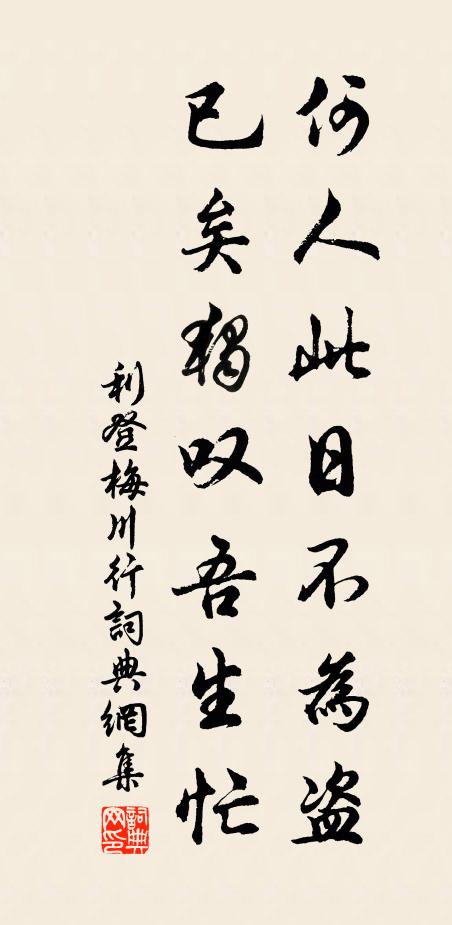 何人此日不為盗
已矣獨叹吾生忙
利登梅川行詞典網集
詞典網印